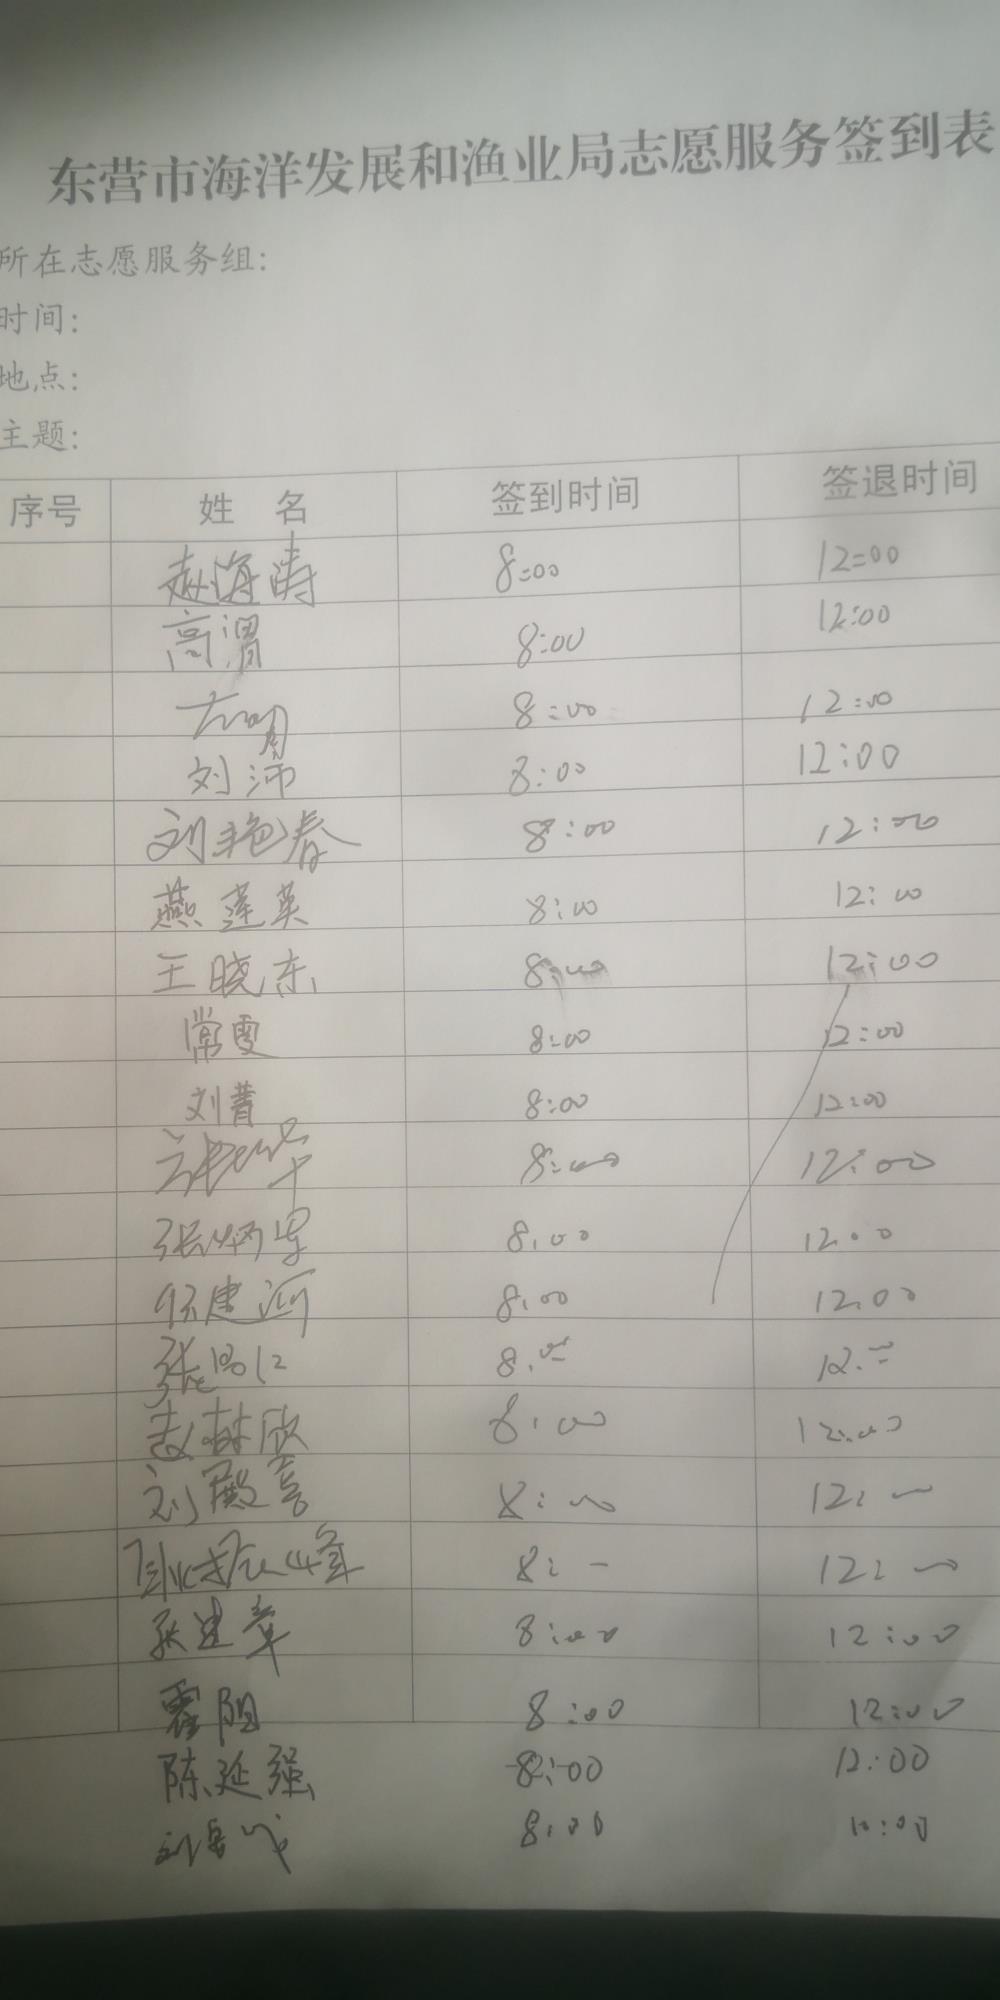 东营市海洋发展和渔业局志愿服务签到表
所在志愿服务组:
时间:
地点:
主题:
序号 姓 名 签到时间 签退时间
赵海涛 8:00 12:00
高渭 8:00 12:00
8:00 12:00
刘沛 8:00 12:00
刘艳春 8:00 12:00
燕莲英 8:00 12:00
王晓东 8:00 12:00
常雯 8:00 12:00
刘菁 8:00 12:00
8:00 12:00
张炳军 8.00 12.00
8.00 12.00
8. 12.
8:00 12:00
刘殿喜 8: 12:
8: 12:
建章 8:00 12:00
霍阳 8:00 12:00
陈延强 8:00 12:00
8:00